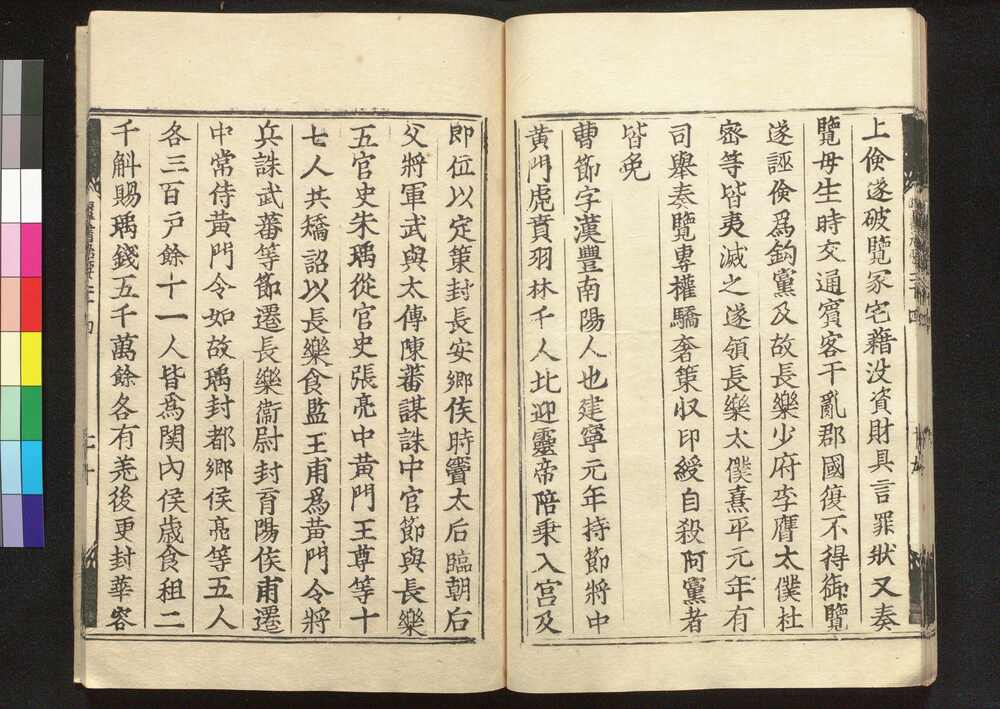 上儉遂破覽冢宅藉没資財具言罪狀又奏
覽母生時交通賓客干亂郡國復不得御覽
遂誣儉爲鈎黨及故長樂少府李膺太僕杜
宻等皆夷滅之遂領長樂太僕熹平元年有
司舉奏覽專權驕奢策收印綬自殺阿黨者
皆免
曹節字漢豐南陽人也建寧元年持節將中
黃門虎賁羽林千人北迎靈帝陪乗入宫及
即位以定策封長安鄉侯時竇太后臨朝后
父將軍武與太傅陳蕃謀誅中官節與長樂
五官史朱瑀從官史張亮中黃門王尊等十
七人共矯詔以長樂食監王甫爲黃門令將
兵誅武蕃等節遷長樂衞尉封育陽侯甫遷
中常侍黃門令如故瑀封都鄉侯亮等五人
各三百戸餘十一人皆爲関内侯歲食租二
千斛賜瑀錢五千萬餘各有差後更封華容